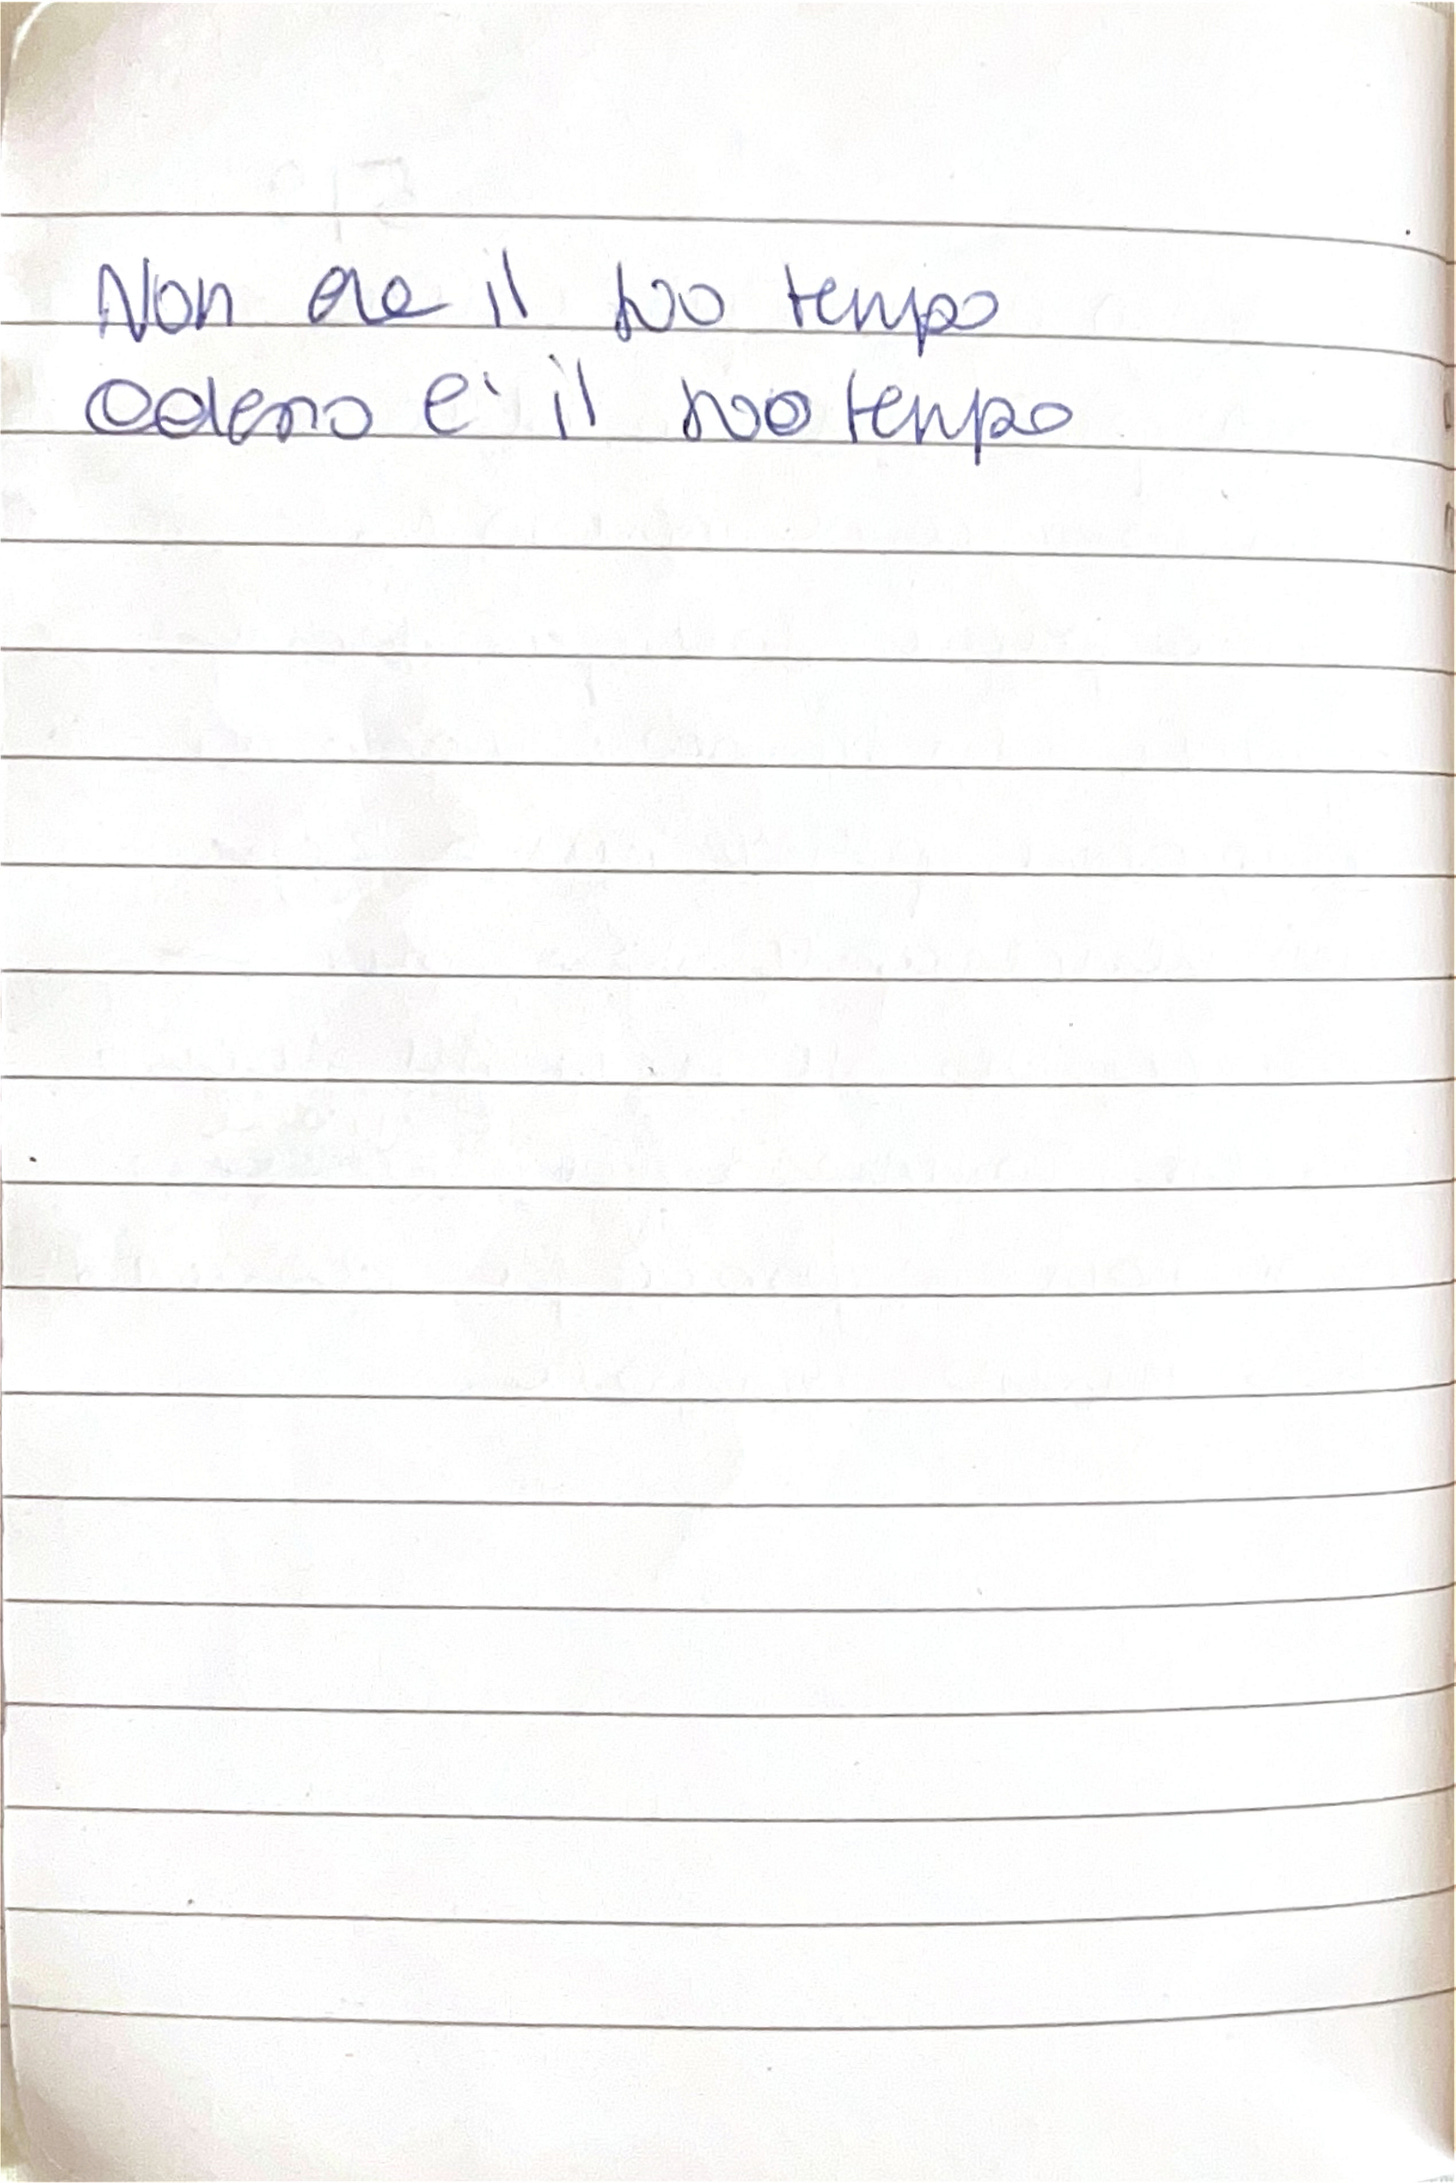 Non era il suo tempo
Adesso è il suo tempo